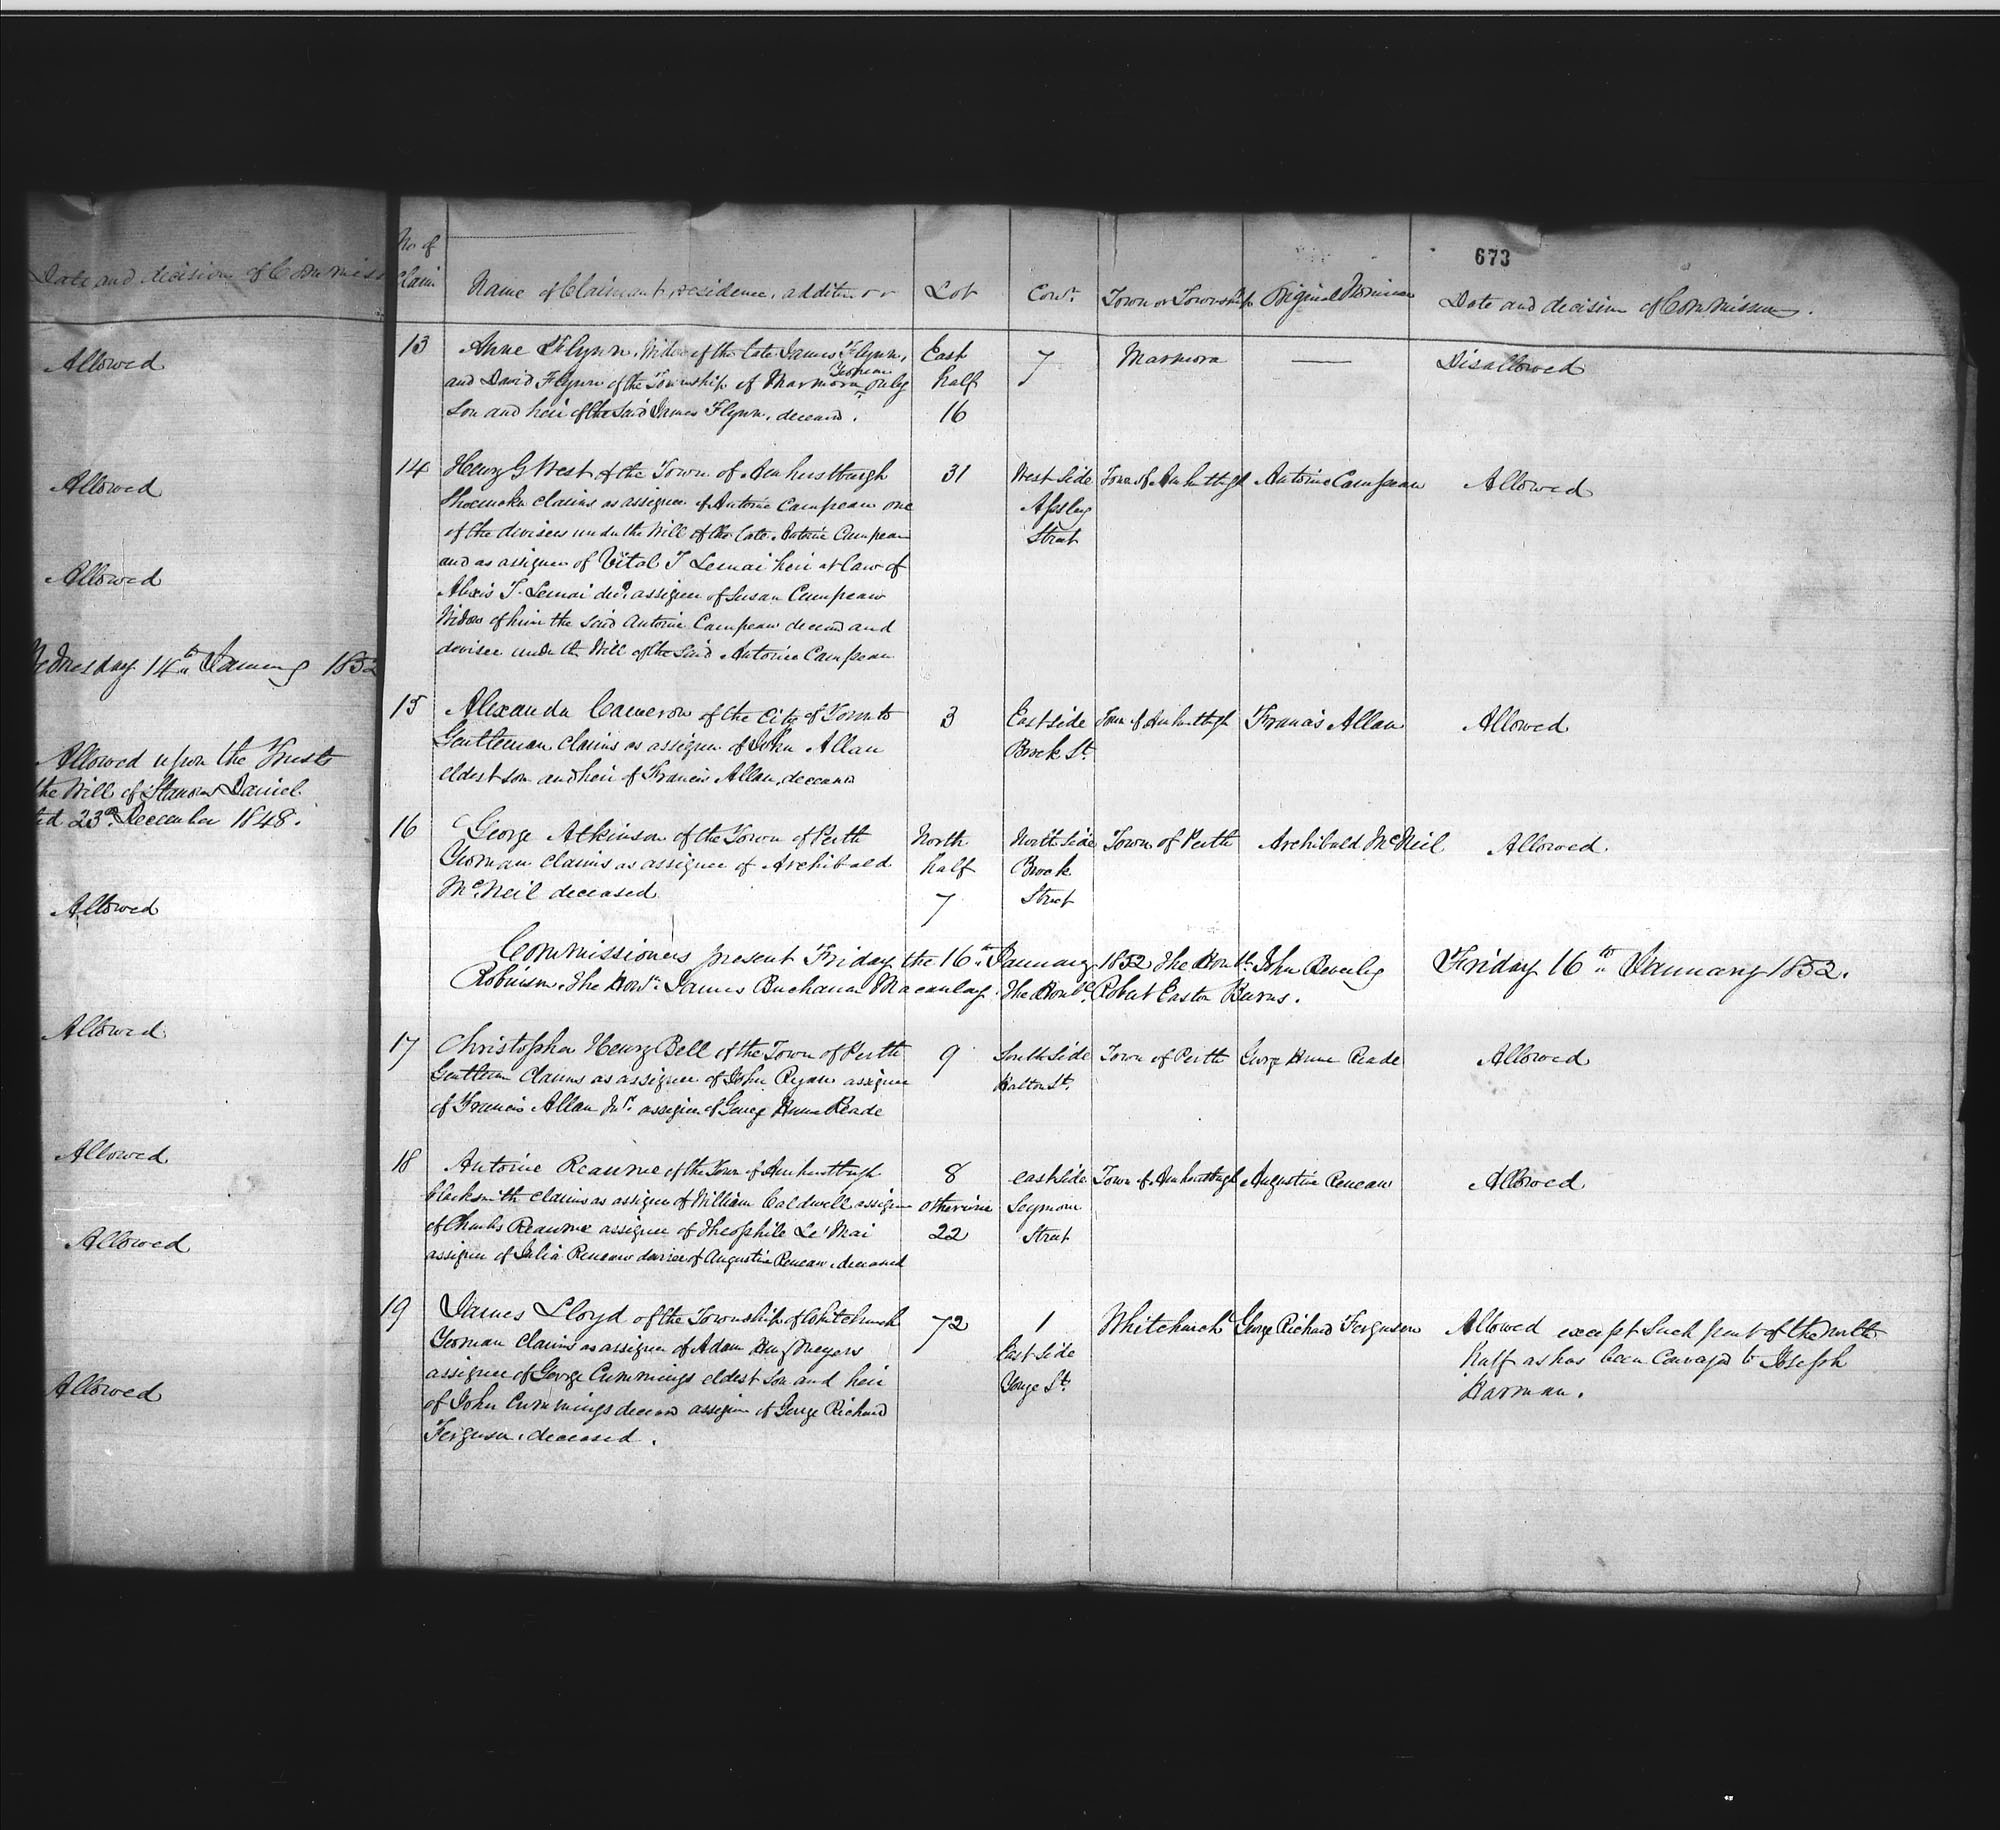 Date and decision of Commiss
Allowed
Allowed
Allowed
Wednesday 14th January 1852
Allowed upon the Trusts
the Will of Daniel
ted 23d December 1848.
Allowed
Allowed
Allowed
Allowed
Allowed
673
No. of Claim Name of Claimant, residence, addition &c Lot Con. Town or Township Original Nominee Date and decision of Commissioners.
13 Anne Flynn, Widow of the late James Flynn, East 7 Marmora — Disallowed
Yeoman
and David Flynn of the Township of Marmora, only half
Son and heir of the said James Flynn, deceased. 16
14 Henry G West of the Town of Amherstburgh 31 West Side Town of Amherstburgh Antoine Campeau Allowed
Shoemaker claims as assignee of Antoine Campeau one Apsley
of the devisees under the Will of the late Antoine Campeau Street
and as assignee of Vital T Lemai heir at law of
Alexis T. Lemai decd assignee of Susan Campeau
Widow of him the said Antoine Campeau deceased and
devisee under the Will of the said Antoine Campeau
15 Alexander Cameron of the City of Toronto 3 East side Town of Amherstburgh Francis Allan Allowed
Gentleman claims as assignee of John Allan Brock St.
eldest son and heir of Francis Allan, deceased
16 George Atkinson of the Town of Perth North North Side Town of Perth Archibald McNeil Allowed.
Yeoman claims as assignee of Archibald half Brock
McNeil deceased 7 Street
Commissioners present Friday the 16th January 1852 The Honble. John Beverley Friday 16th January 1852.
Robinson. The Honble. James Buchanan Macaulay. The Honble. Robert Easton Burns.
17 Christopher Henry Bell of the Town of Perth 9 South Side Town of Perth George Hume Reade Allowed
Gentleman claims as assignee of John Ryan assignee Halton St.
of Francis Allan Junr. assignee of George Hume Reade
18 Antoine Reaume of the Town of Amherstburgh 8 east side Town of Amherstburgh Augustin Reneau Allowed
blacksmith claims as assignee of William Caldwell assignee otherwise Seymour
of Charles Reaume assignee of Theophile Le'Mai 22 Street
assignee of Julia Reneau devisee of Augustin Reneau, deceased
19 James Lloyd of the Township of Whitchurch 72 1 Whitchurch George Richard Ferguson Allowed except such part of the north
Yeoman claims as assignee of Adam Meyers East Side half as has been conveyed to Joseph
assignee of George Cummings eldest son and heir Yonge St. Harman.
of John Cummings deceased assignee of George Richard
Ferguson, deceased.